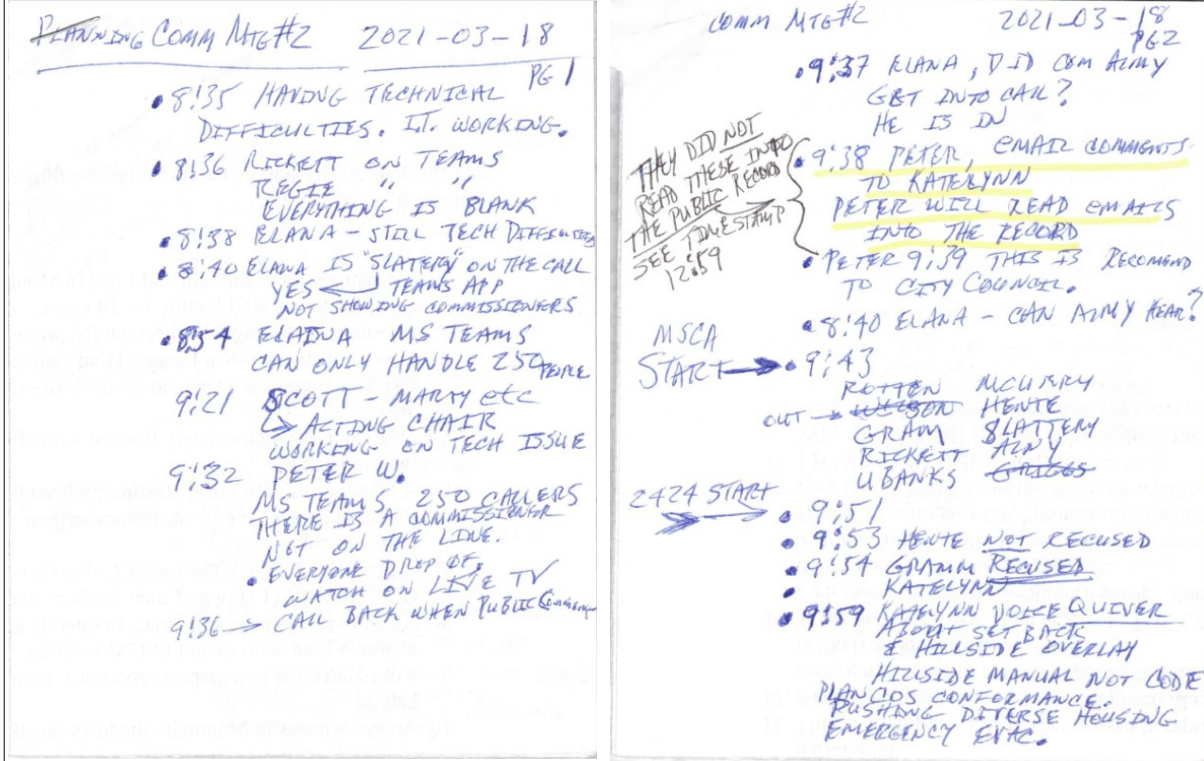 PLANNING COMM MTG#2 2021-03-18
PG 1
• 8:35 HAVING TECHNICAL
DIFFICULTIES. I.T. WORKING.
• 8:36 RICKETT ON TEAMS
REGIE " "
EVERYTHING IS BLANK
• 8:38 ELANA - STILL TECH DIFFICULTIES
• 8:40 ELANA IS "SLATERY" ON THE CALL
YES TEAMS APP
NOT SHOWING COMMISSIONERS
• 8:54 ELAINA MS TEAMS
CAN ONLY HANDLE 250 PEOPLE
9:21 SCOTT - MARTY etc
→ ACTING CHAIR
WORKING ON TECH ISSUE
9:32 PETER W.
MS TEAMS, 250 CALLERS
THERE IS A COMMISSIONER
NOT ON THE LINE.
• EVERYONE DROP OF,
WATCH ON LIVE TV
9:36 → CALL BACK WHEN PUBLIC
COMM MTG#2 2021-03-18
PG2
• 9:37 ELANA, DID COM ALMY
GET INTO CALL?
HE IS IN
• 9:38 PETER, EMAIL COMMENTS
TO KATELYNN
PETER WILL READ EMAILS
INTO THE RECORD
THEY DID NOT
READ THESE INTO
THE PUBLIC RECORD
SEE TIMESTAMP
12:59
• PETER 9:39 THIS IS RECOMEND
TO CITY COUNCIL.
• 8:40 ELANA - CAN ALMY HEAR?
MSCA
START → • 9:43
ROTTEN MCURRY
OUT → WILSON HENTE
GRAM SLATTERY
RICKETT ALMY
UBANKS GRIGGS
2424 START
→ • 9:51
• 9:53 HENTE NOT RECUSED
• 9:54 GRAMM RECUSED
• KATELYNN
• 9:59 KATELYNN VOICE QUIVER
ABOUT SETBACK
& HILLSIDE OVERLAY
HILLSIDE MANUAL NOT CODE
PLANCOS CONFORMANCE.
PUSHING DITERSE HOUSING
EMERGENCY EVAC.